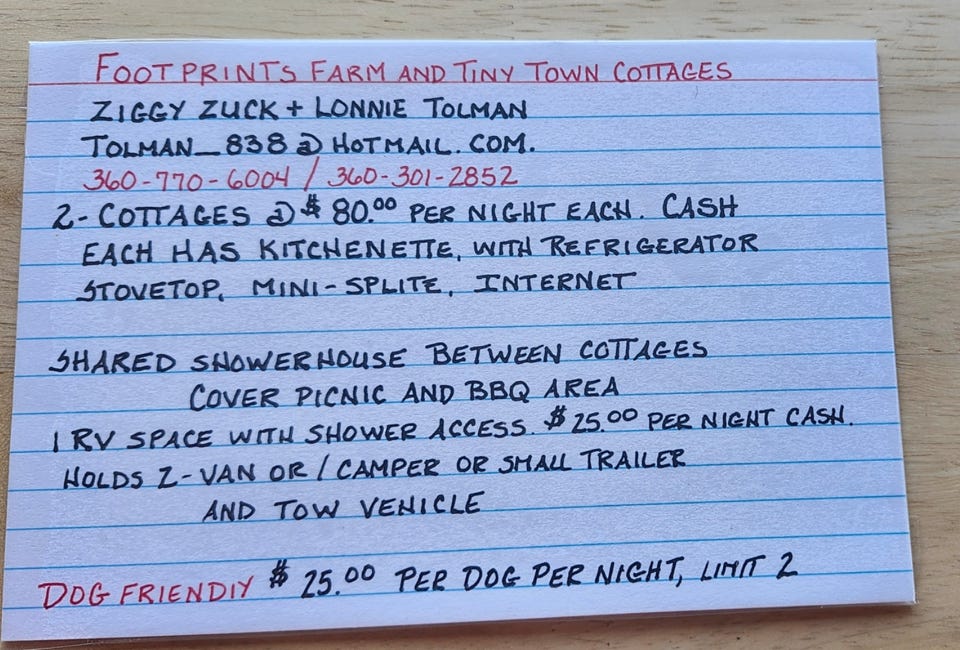 FOOTPRINTS FARM AND TINY TOWN COTTAGES
ZIGGY ZUCK + LONNIE TOLMAN
TOLMAN_838@HOTMAIL.COM.
360-770-6004 / 360-301-2852
2- COTTAGES @ $80.00 PER NIGHT EACH. CASH
EACH HAS KITCHENETTE, WITH REFRIGERATOR
STOVETOP, MINI-SPLITE, INTERNET
SHARED SHOWERHOUSE BETWEEN COTTAGES
COVER PICNIC AND BBQ AREA
1 RV SPACE WITH SHOWER ACCESS. $25.00 PER NIGHT CASH.
HOLDS 2-VAN OR / CAMPER OR SMALL TRAILER
AND TOW VEHICLE
DOG FRIENDIY $25.00 PER DOG PER NIGHT, LIMIT 2